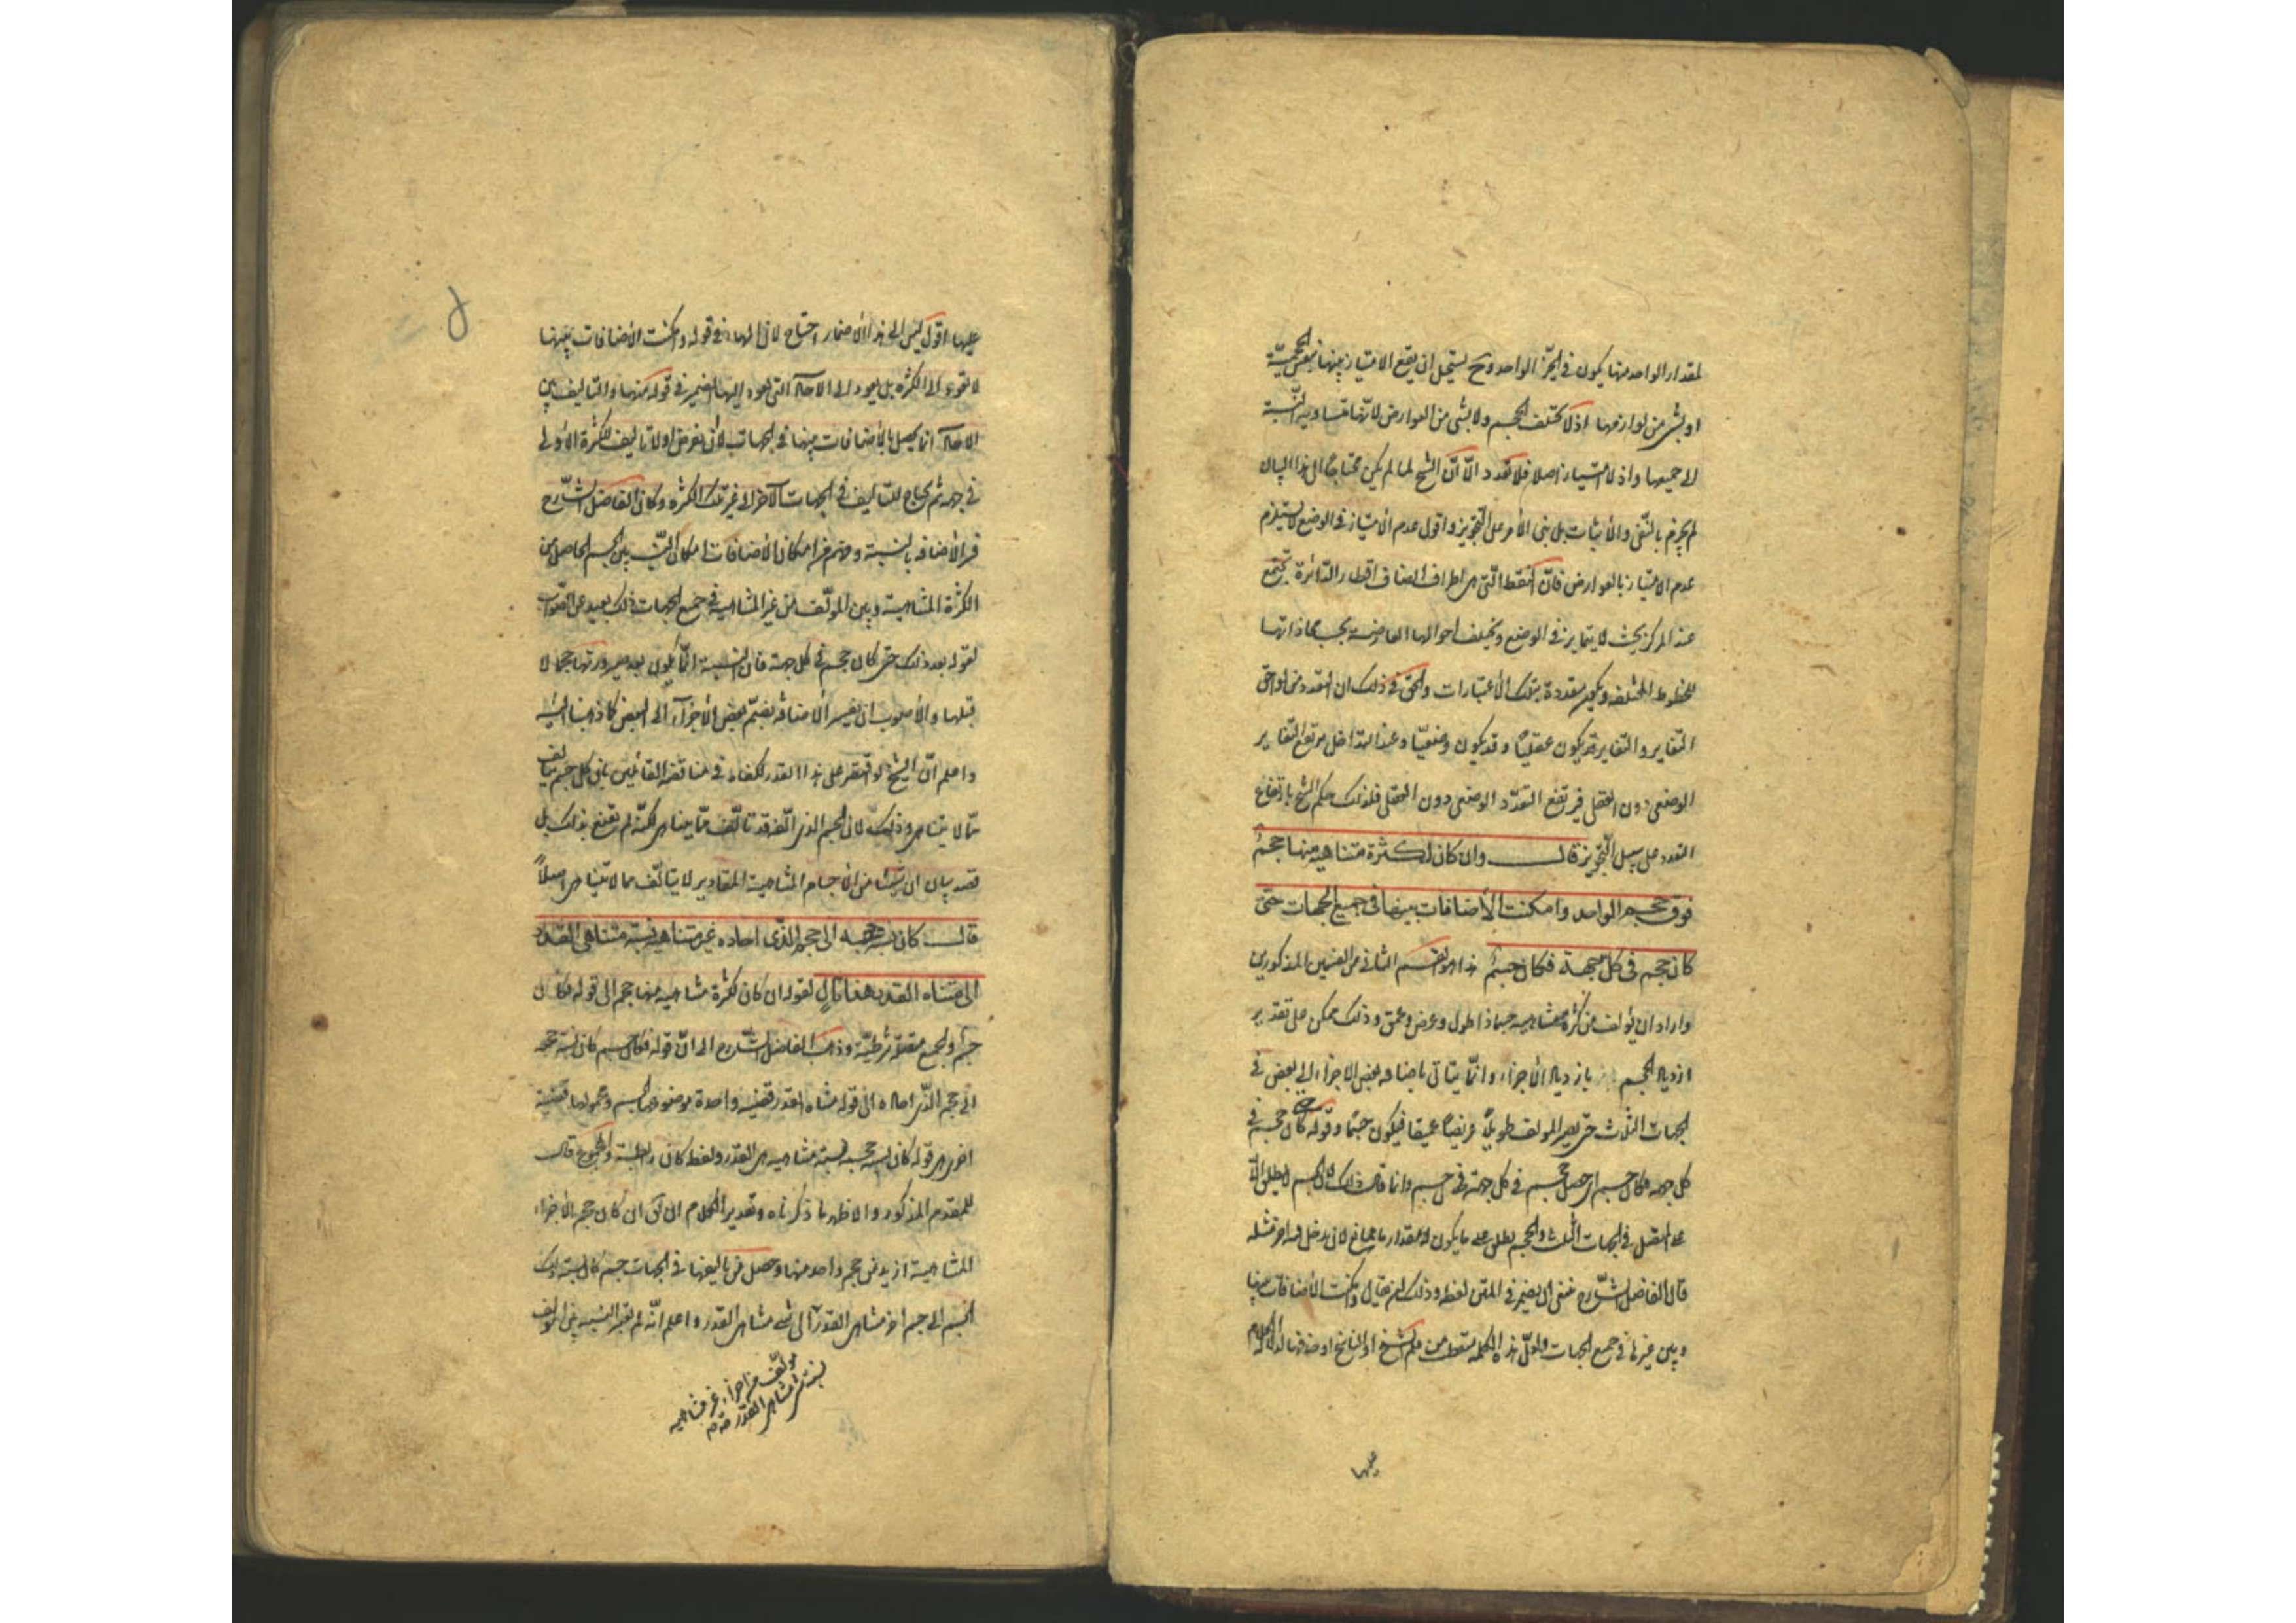 لمقدار الواحد منها يكون في الحيّز الواحد وح يستحيل ان يقع الامتياز بينها بنفس الحجميّة
او بشئ من لوازمها اذ لا يختلف الحجم ولا بشئ من العوارض لانّها متساوية النّسبة
الى جميعها واذ لا امتياز اصلا فلا تعدد الّا انّ الشيخ لما لم يكن محتاجًا الى هذا البيان
لم يجزم بالنّفى والاثبات بل بنى الامر على التّجويز واقول عدم الامتياز في الوضع لا يستلزم
عدم الامتياز بالعوارض فانّ النقط الّتى هي اطراف انصاف اقطار الدّائرة تجتمع
عند المركز بحيث لا يتمايز في الوضع ويختلف احوالها العارضة بحسب محاذاتها
للخطوط المختلفة ويكون متعددة بتلك الاعتبارات والحق في ذلك ان التعدد من لواحق
التغاير والتغاير قد يكون عقليًّا وقد يكون وضعيًّا وعند التداخل يرتفع التغاير
الوضعى دون العقلى فيرتفع التعدّد الوضعى دون العقلى فلذلك حكم الشيخ بارتفاع
التعدد على سبيل التّجويز قال وان كان لكثرة متناهية منها حجمٌ
فوق حجم الواحد وامكنت الأضافات بينها في جميع الجهات حتى
كان حجم في كل جهة فكان جسمٌ هذا هو القسم الثانى من القسمين المذكورين
واراد ان يؤلف من كثرة متناهية جسما ذا طول وعرض وعمق وذلك ممكن على تقدير
ازدياد الحجم بازدياد الأجزاء وانّما يتاتى باضافة بعض الاجزاء الى بعض في
الجهات الثلاث حتّى يصير المؤلف طويلًا عريضًا عميقا فيكون جسمًا وقوله كان حجم في
كل جهة فكان جسم اى حصل حجم في كل جهة في جسم وانما قال ذلك لان الجسم لا يطلق الّا
على المتصل في الجهات الثلث والحجم يطلق على ما يكون له مقدار ما مانع لان يدخل فيه اخر مثله
قال الفاضل الشّارح ينبغى ان يضمر في المتن لفظه وذلك ان يقال وامكنت الأضافات بينها
وبين غيرها في جميع الجهات ولعلّ هذه الكلمة سقطت من قلم الشيخ او الناسخ او حذفها لدلالة الكلام
عليها
عليها اقول ليس الى هذا الاضمار احتياج لان الهاء في قوله وامكنت الأضافات بينها
لا تعود الى الكثرة بل يعود الى الآحاد التى يعود اليها الضمير في قوله منها والتاليف بين
الآحاد انما يحصل بالأضافات بينها في الجهات لا أن يفرض اولا تاليف للكثرة الأولى
في جهة ثم يحتاج للتاليف في الجهات الأخر الى غير تلك الكثرة وكان الفاضل الشّارح
فسر الأضافة بالنسبة وفهم من امكان الأضافات امكان النّسب بين الجسم الحاصل من
الكثرة المتناهية وبين المؤلّف من غير المتناهية في جميع الجهات وذلك بعيد عن الصّواب
لقوله بعد ذلك حتى كان حجم في كل جهة فان النسبة انّما يكون بعد صيرورتها حجما لا
قبلها والأصوب ان يفسر الأضافة بضمّ بعض الأجزاء الى البعض كما ذهبنا اليه
واعلم انّ الشيخ لو اقتصر على هذا القدر لكفاه في مناقضة القائلين بان كل جسم يتالف
ممّا لا يتناهى وذلك لان الجسم الذى الّفه قد تالّف ممّا يتناهى لكنّه لم يقنع بذلك بل
قصد بيان ان شيئا من الأجسام المتناهية المقادير لا يتالّف مما لا يتناهى اصلًا
قال كان نسبة حجمه الى حجم الّذى احاده غير متناهية نسبة متناهى القدر
الى متناه القدر هذا تالٍ لقوله ان كان لكثرة متناهية منها حجم الى قوله فكان
جسمٌ والجميع متصلة شرطيّة وذهب الفاضل الشّارح الى انّ قوله فكان جسم كان نسبة حجمه
الى حجم الذّى احاده الى قوله متناه القدر قضيّة واحدة موضوعها الجسم ومحمولها قضية
اخرى هي قوله كان نسبة حجمه نسبة متناهية هي القدر ولفظة كان رابطة والمجموع تال
للمقدم المذكور والاظهر ما ذكرناه وتقدير الكلام ان يق ان كان حجم الاجزاء
المتناهية ازيد من حجم واحد منها وحصل من تاليفها في الجهات جسم كان نسبة ذلك
الجسم الى جسم اخر متناهى القدر الى شئ متناهى القدر واعلم انّه لم يعتبر النسبة بين المؤلف
مؤلف من اجزاء غير متناهية
نسبة شئ متناهى القدر